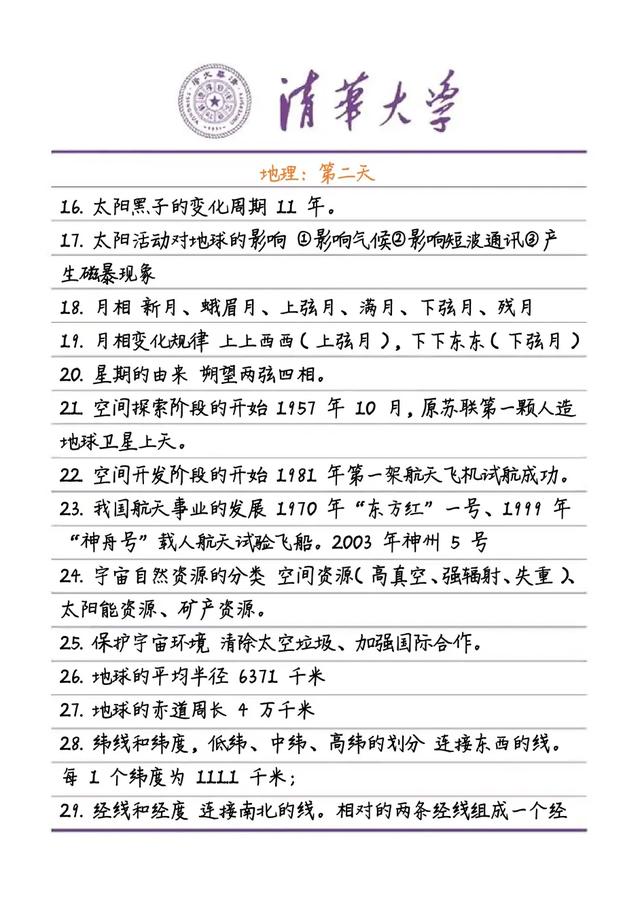 清华大学
地理：第二天
16. 太阳黑子的变化周期 11 年。
17. 太阳活动对地球的影响 ①影响气候②影响短波通讯③产
生磁暴现象
18. 月相 新月、蛾眉月、上弦月、满月、下弦月、残月
19. 月相变化规律 上上西西（上弦月），下下东东（下弦月）
20. 星期的由来 朔望两弦四相。
21. 空间探索阶段的开始 1957 年 10 月，原苏联第一颗人造
地球卫星上天。
22. 空间开发阶段的开始 1981 年第一架航天飞机试航成功。
23. 我国航天事业的发展 1970 年“东方红”一号、1999 年
“神舟号”载人航天试验飞船。2003 年神州 5 号
24. 宇宙自然资源的分类 空间资源（高真空、强辐射、失重）、
太阳能资源、矿产资源。
25. 保护宇宙环境 清除太空垃圾、加强国际合作。
26. 地球的平均半径 6371 千米
27. 地球的赤道周长 4 万千米
28. 纬线和纬度，低纬、中纬、高纬的划分 连接东西的线。
每 1 个纬度为 111.1 千米；
29. 经线和经度 连接南北的线。相对的两条经线组成一个经